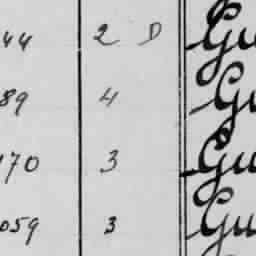 44 2 D Gu
89 4 Gu
170 3 Gu
059 3 Gu